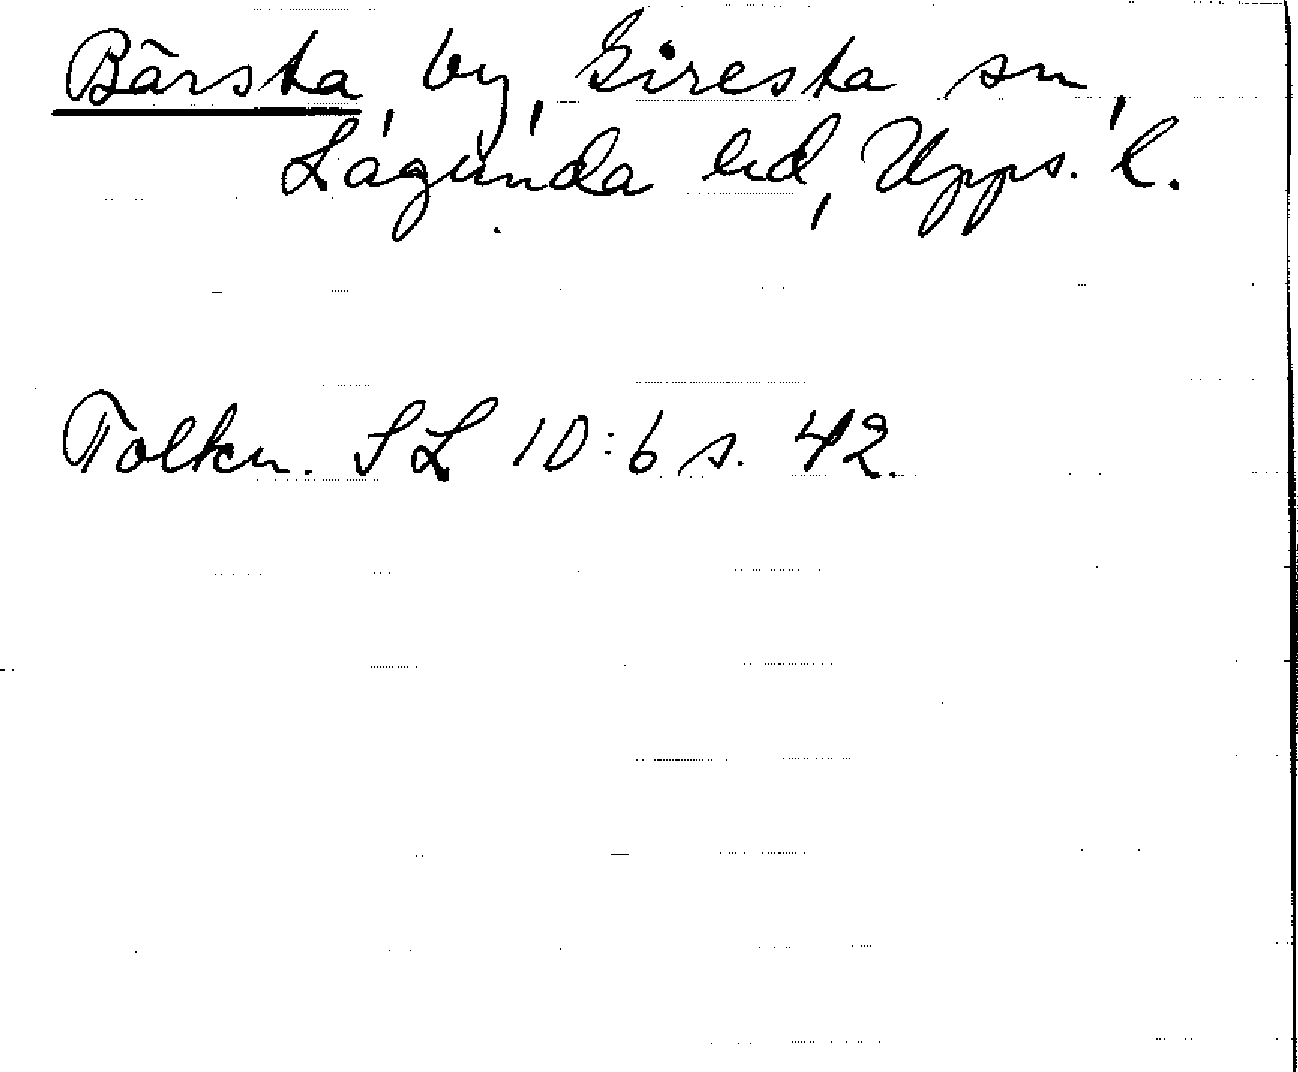 Bärsta, by, Giresta sn,
Lagunda hd, Upps. l.
Tolkn. SL 10:6 s. 42.